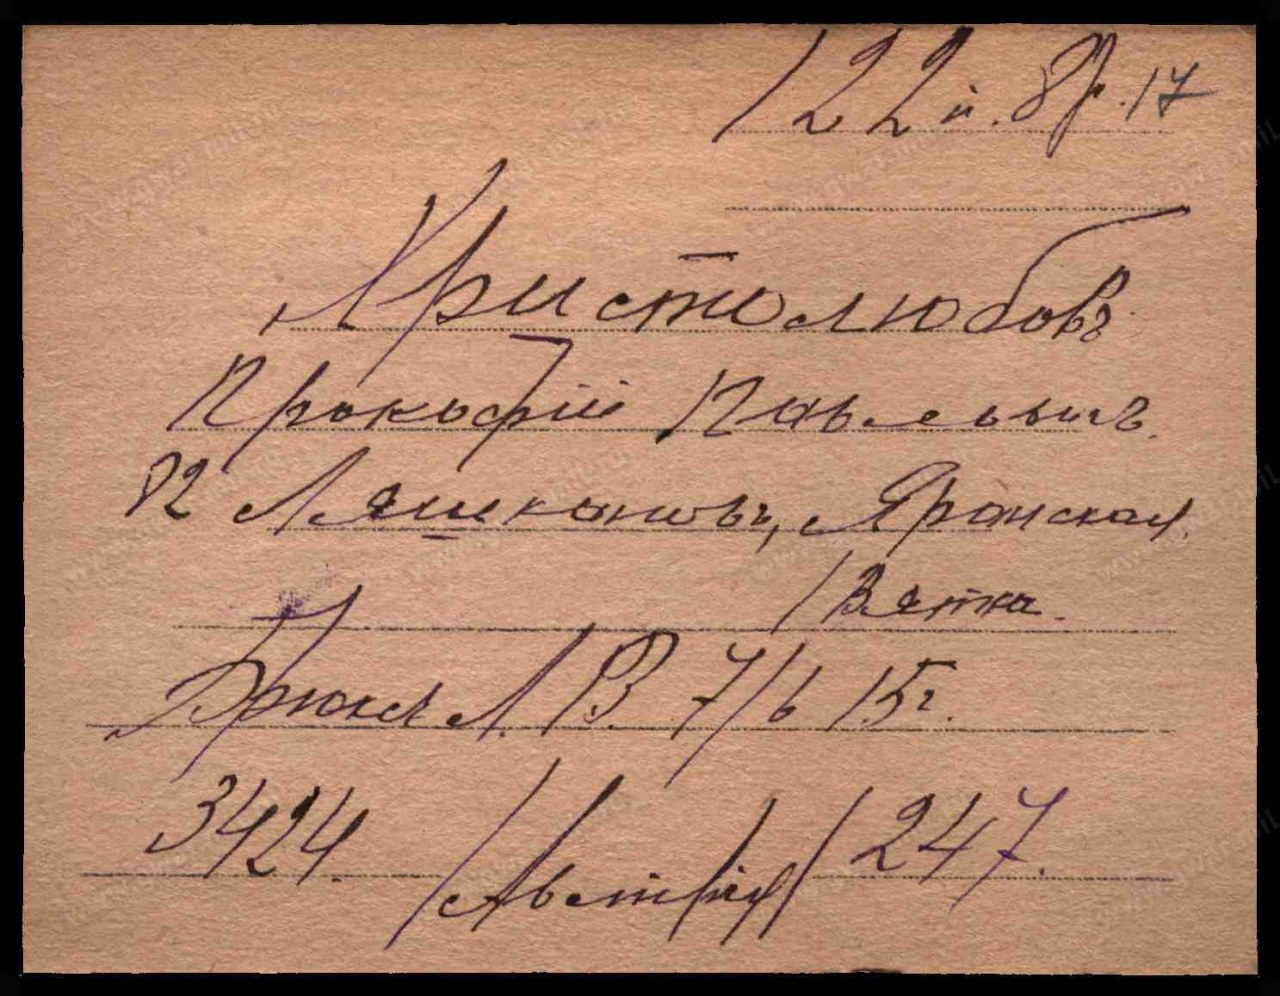 122й. др. 17
Христолюбовъ
Прокофій Павловичъ.
82 Ляшкановъ, Яранская.
/Вятка.
Брюксъ Л. /В. 7/6 15г.
3424. /Австрія/ 247.